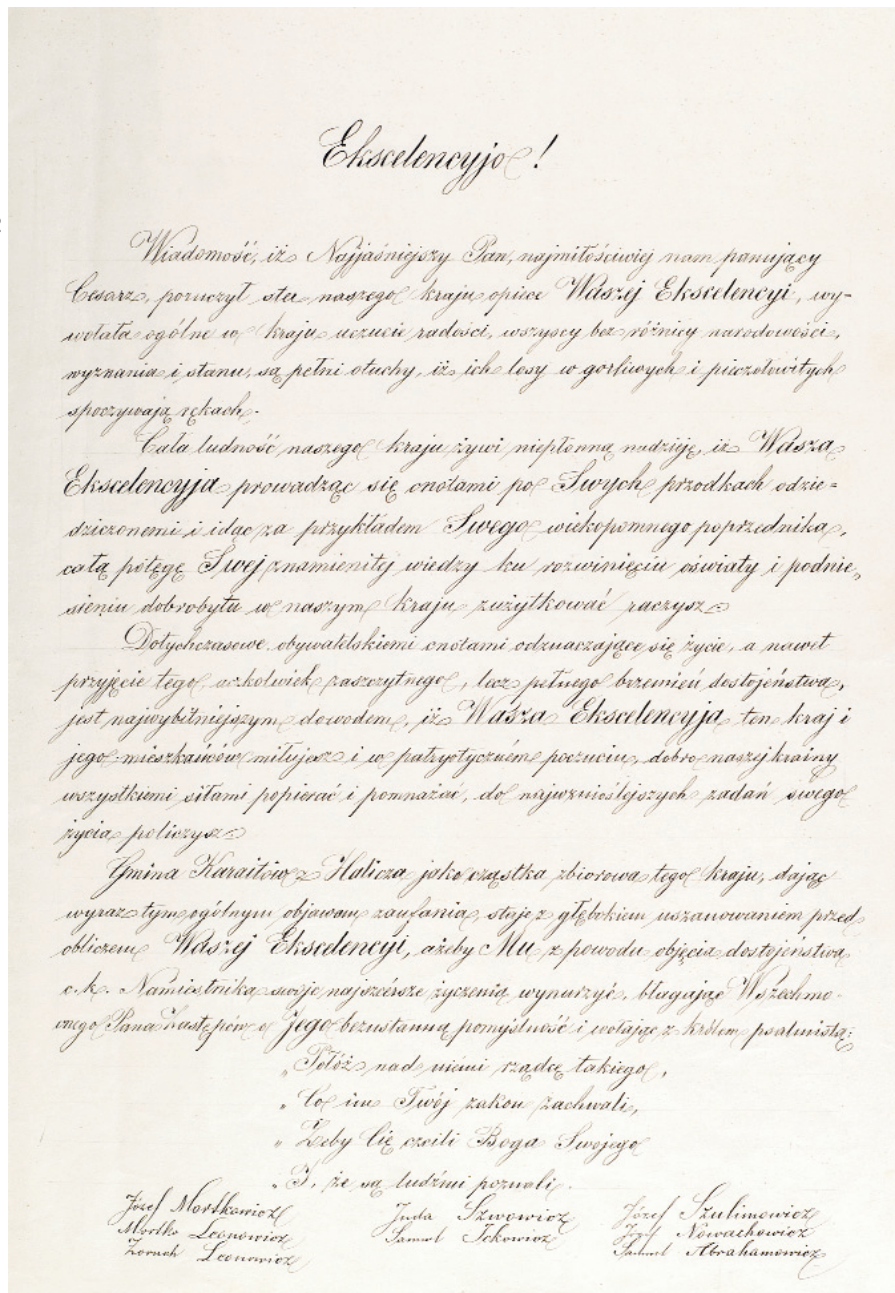 Ekscelencyjo!
Wiadomość, iż Najjaśniejszy Pan, najmiłościwiej nam panujący
Cesarz, poruczył ster naszego kraju opiece Waszej Ekscelencyi, wy-
wołała ogólne w kraju uczucie radości, wszyscy bez różnicy narodowości,
wyznania i stanu, są pełni otuchy, iż ich losy w gorliwych i pieczołowitych
spoczywają rękach.
Cała ludność naszego kraju żywi niepłonną nadzieję, iż Wasza
Ekscelencyja prowadząc się cnotami po Swych przodkach odzie-
dziczonemi i idąc za przykładem Swego wiekopomnego poprzednika,
całą potęgę Swej znamienitej wiedzy ku rozwinięciu oświaty i podnie-
sieniu dobrobytu w naszym kraju zużytkować raczysz.
Dotychczasowe, obywatelskiemi cnotami odznaczające się życie, a nawet
przyjęcie tego, aczkolwiek zaszczytnego, lecz pełnego brzemień dostojeństwa,
jest najwybitniejszym dowodem, iż Wasza Ekscelencyja ten kraj i
jego mieszkańców miłujesz i w patryotycznem poczuciu, dobro naszej krainy
wszystkiemi siłami popierać i pomnażać, do najwznioślejszych zadań swego
życia policzysz.
Gmina Karaitów z Halicza jako cząstka zbiorowa tego kraju, dając
wyraz tym ogólnym objawom zaufania, staje z głębokiem uszanowaniem przed
obliczem Waszej Ekscelencyi, ażeby Mu z powodu objęcia dostojeństwa
c. k. Namiestnika swoje najszczersze życzenia wynurzyć, błagając Wszechmo-
cnego Pana Zastępów o Jego bezustanną pomyślność i wołając z królem psalmistą:
„Połóż nad niemi rządcę takiego,
„Co im Twój zakon zachwali,
„Żeby Cię czcili Boga Swojego
„I, że są ludźmi poznali.
Józef Mortkowicz Juda Szwowicz Józef Szulimowicz
Mortko Leonowicz Samuel Ickowicz Józef Nowachowicz
Zarach Leonowicz Samuel Abrahamowicz